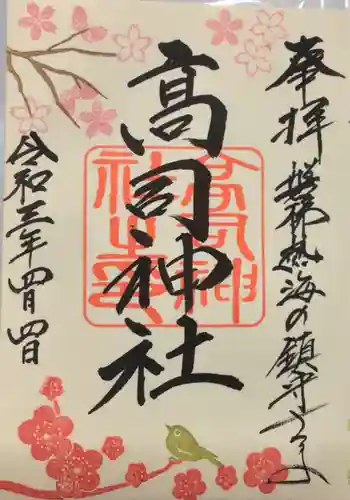 奉拝
磐梯熱海の鎮守さま
高司神社
令和三年四月四日